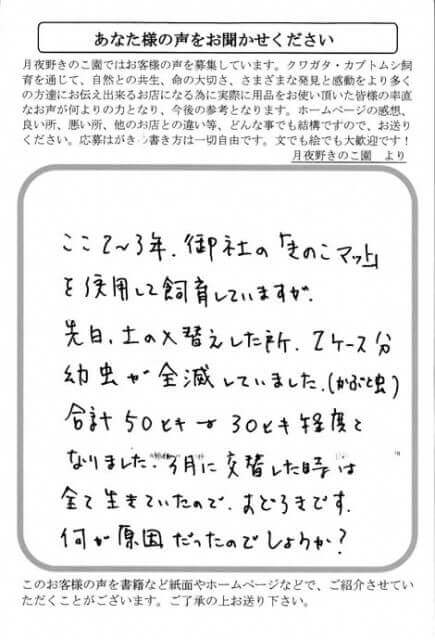 あなた様の声をお聞かせください
月夜野きのこ園ではお客様の声を募集しています。クワガタ・カブトムシ飼
育を通じて、自然との共生、命の大切さ、さまざまな発見と感動をより多く
の方達にお伝え出来るお店になる為に実際に用品をお使い頂いた皆様の率直
なお声が何よりの力となり、今後の参考となります。ホームページの感想、
良い所、悪い所、他のお店との違い等、どんな事でも結構ですので、お送り
ください。応募はがき 書き方は一切自由です。文でも絵でも大歓迎です！
月夜野きのこ園　より
ここ2~3年、御社の「きのこマット」
を使用して飼育していますが、
先日、土の入替えした所、2ケース分
幼虫が全滅していました。(かぶと虫)
合計50ヒキ 30ヒキ程度と
なりました。3月に交替した時は
全て生きていたので、おどろきです。
何が原因だったのでしょうか?
このお客様の声を書籍など紙面やホームページなどで、ご紹介させてい
ただくことがございます。ご了承の上お送り下さい。